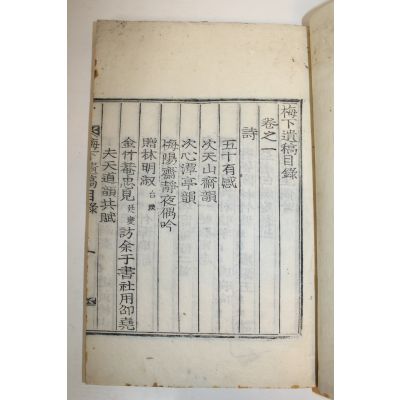 梅下遺稿目錄
卷之一
詩
五十有感
次天山齋韻
次心潭亭韻
梅陽齋靜夜偶吟
贈林明淑
金竹菴忠見 廷燮 訪余于書社用邵堯
夫天道韻共賦
梅下遺稿目錄